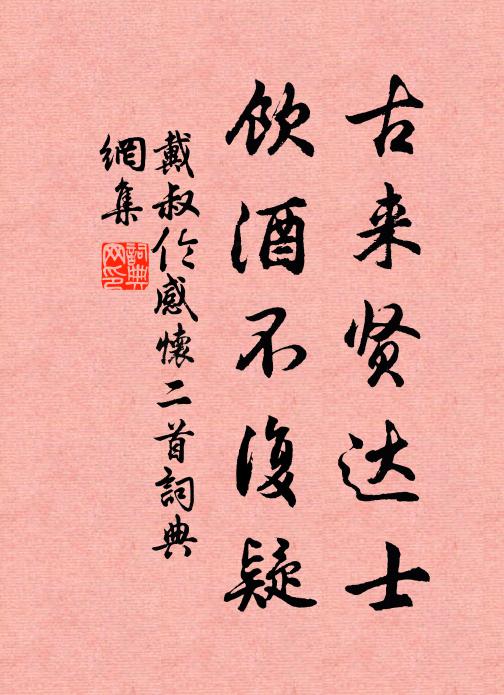 古来贤达士
饮酒不復疑
戴叔伦感懷二首詞典
網集
詞典
网印